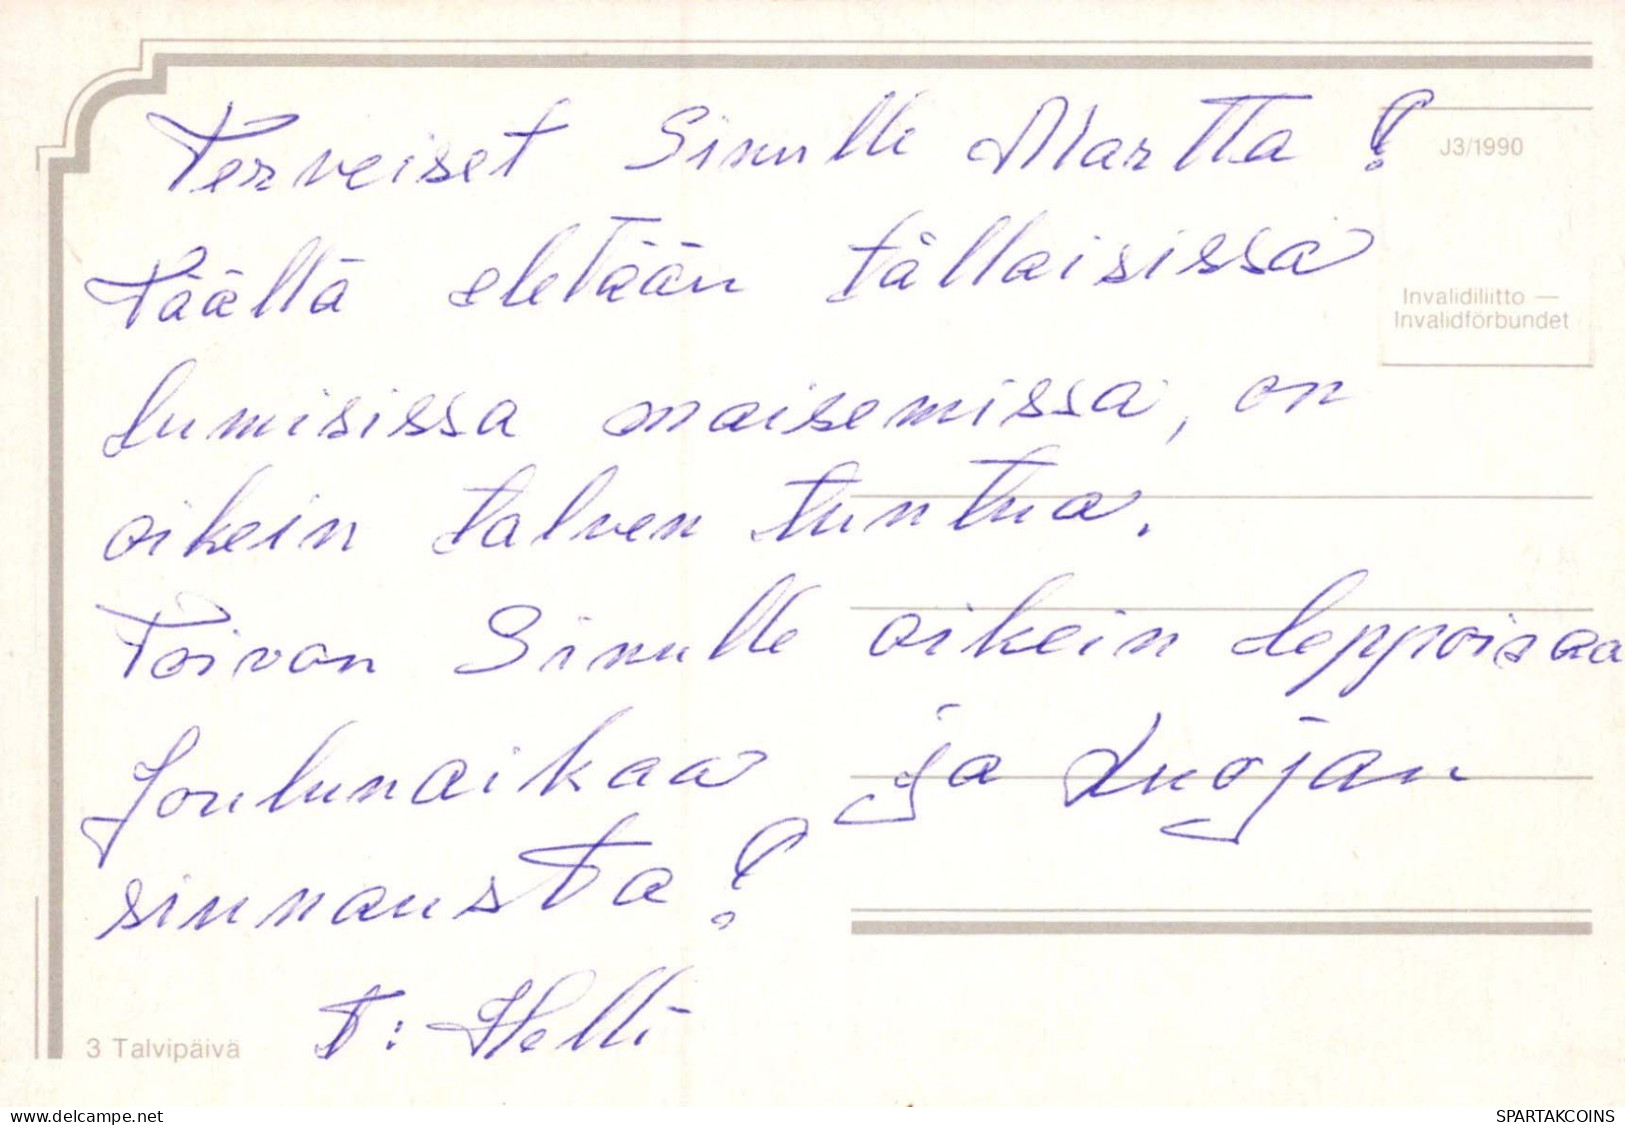 Terveiset Sinulle Martta!
J3/1990
Täältä eletään tällaisissa
Invalidiliitto —
Invalidförbundet
lumisissa maisemissa, on
oikein talven tuntua.
Toivon Sinulle oikein leppoisaa
Joulunaikaa ja Luojan
siunausta!
T: Helli
3 Talvipäivä
www.delcampe.net
SPARTAKCOINS